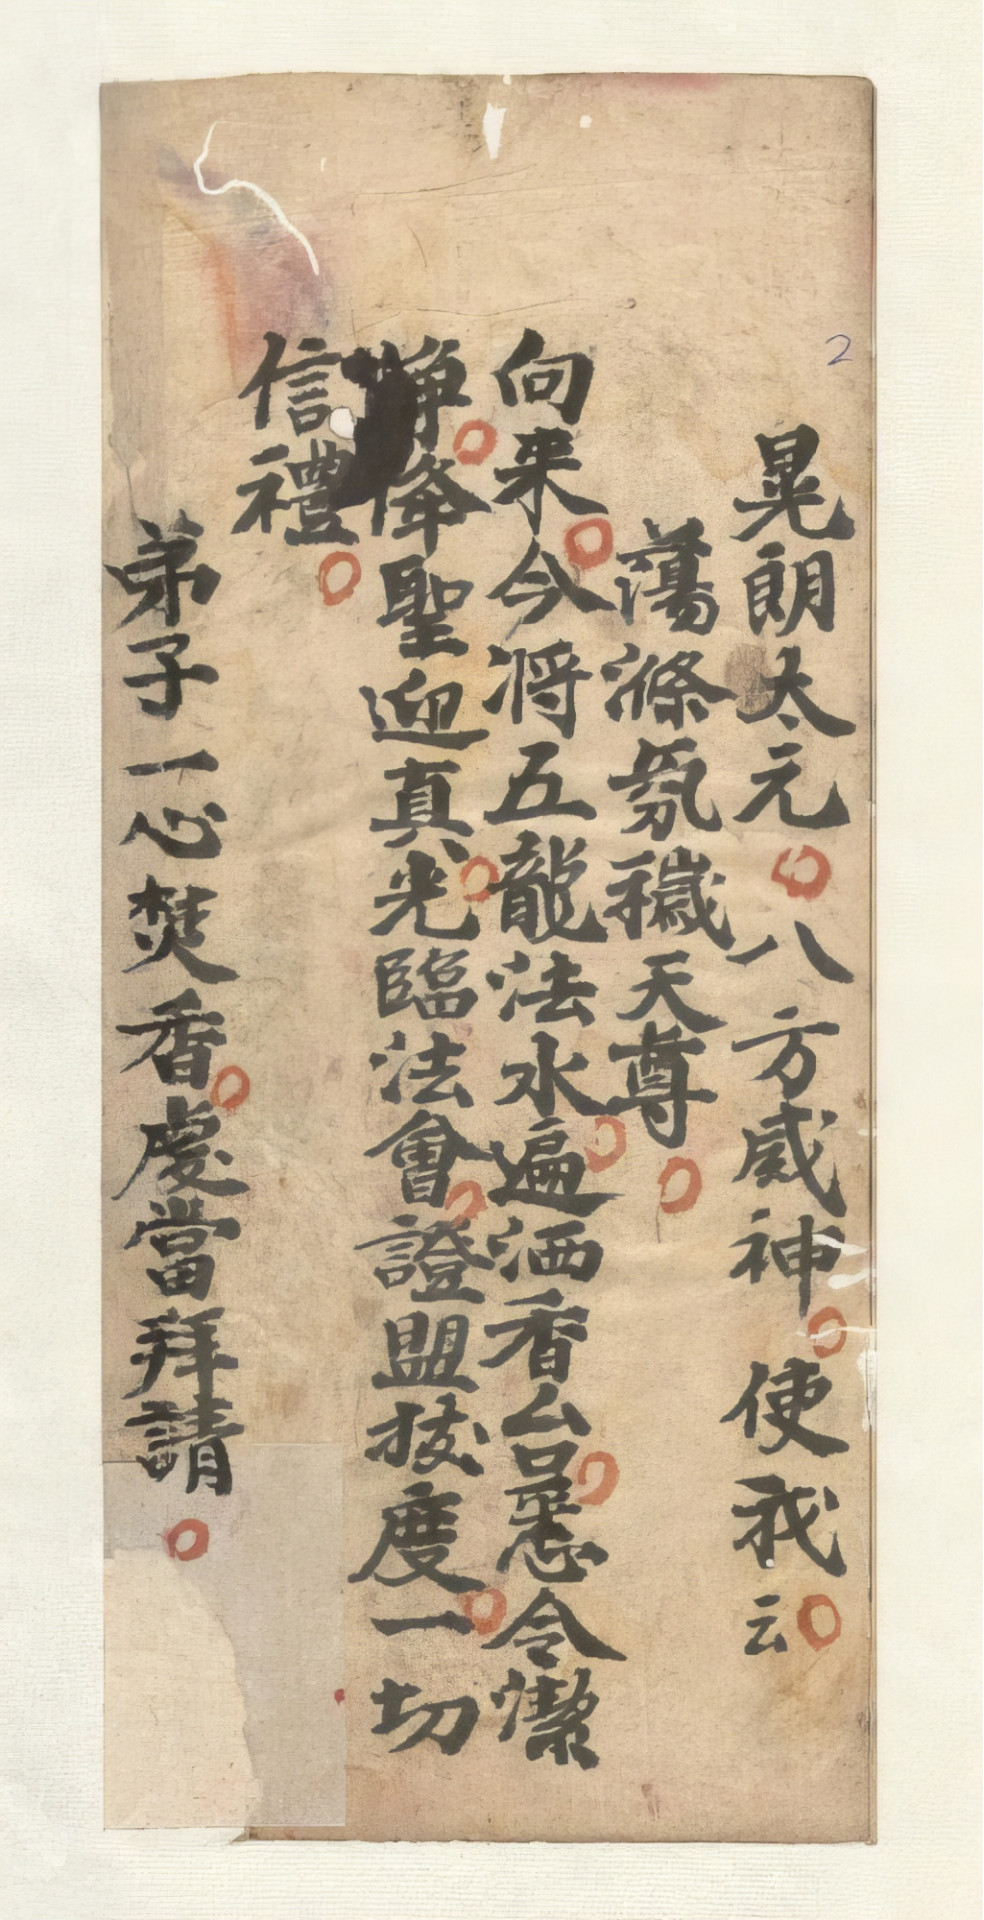 2
晃朗太元八方威神使我云
蕩滌氛穢天尊
向来今将五龍法水遍洒香台悉令潔
淨降聖迎真光臨法會證盟拔度一切
信禮
弟子一心焚香慶當拜請